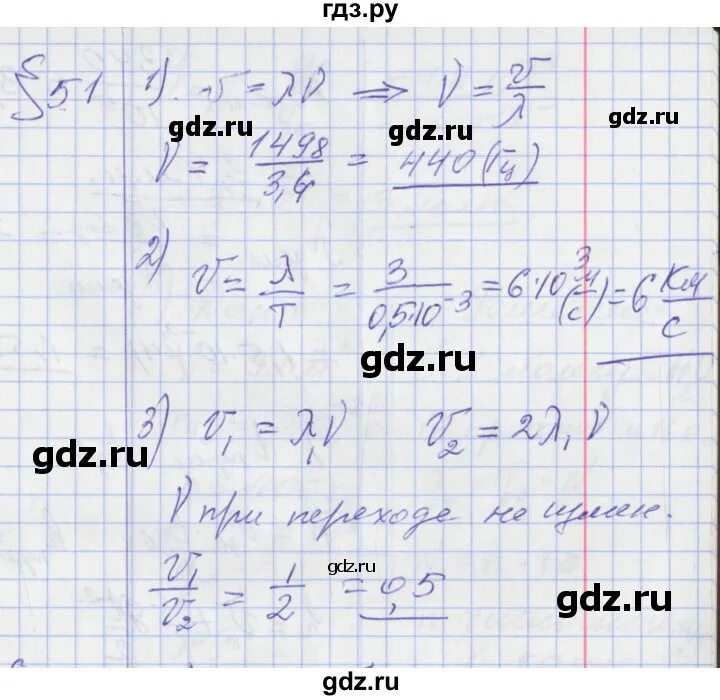 гдз.ру
§51 1). v = λν ⟹ ν = v/λ
gdz.ru gdz.ru
ν = 1498/3,4 = 440 (Гц)
2) v = λ/T = 3/0,5·10⁻³ = 6·10³ (м/с) = 6 Км/с
gdz.ru
3) v₁ = λ₁ν v₂ = 2λ₁ν
gdz.ru
ν при переходе не измен.
gdz.ru
v₁/v₂ = 1/2 = 0,5
gdz.ru gdz.ru
gdz.ru